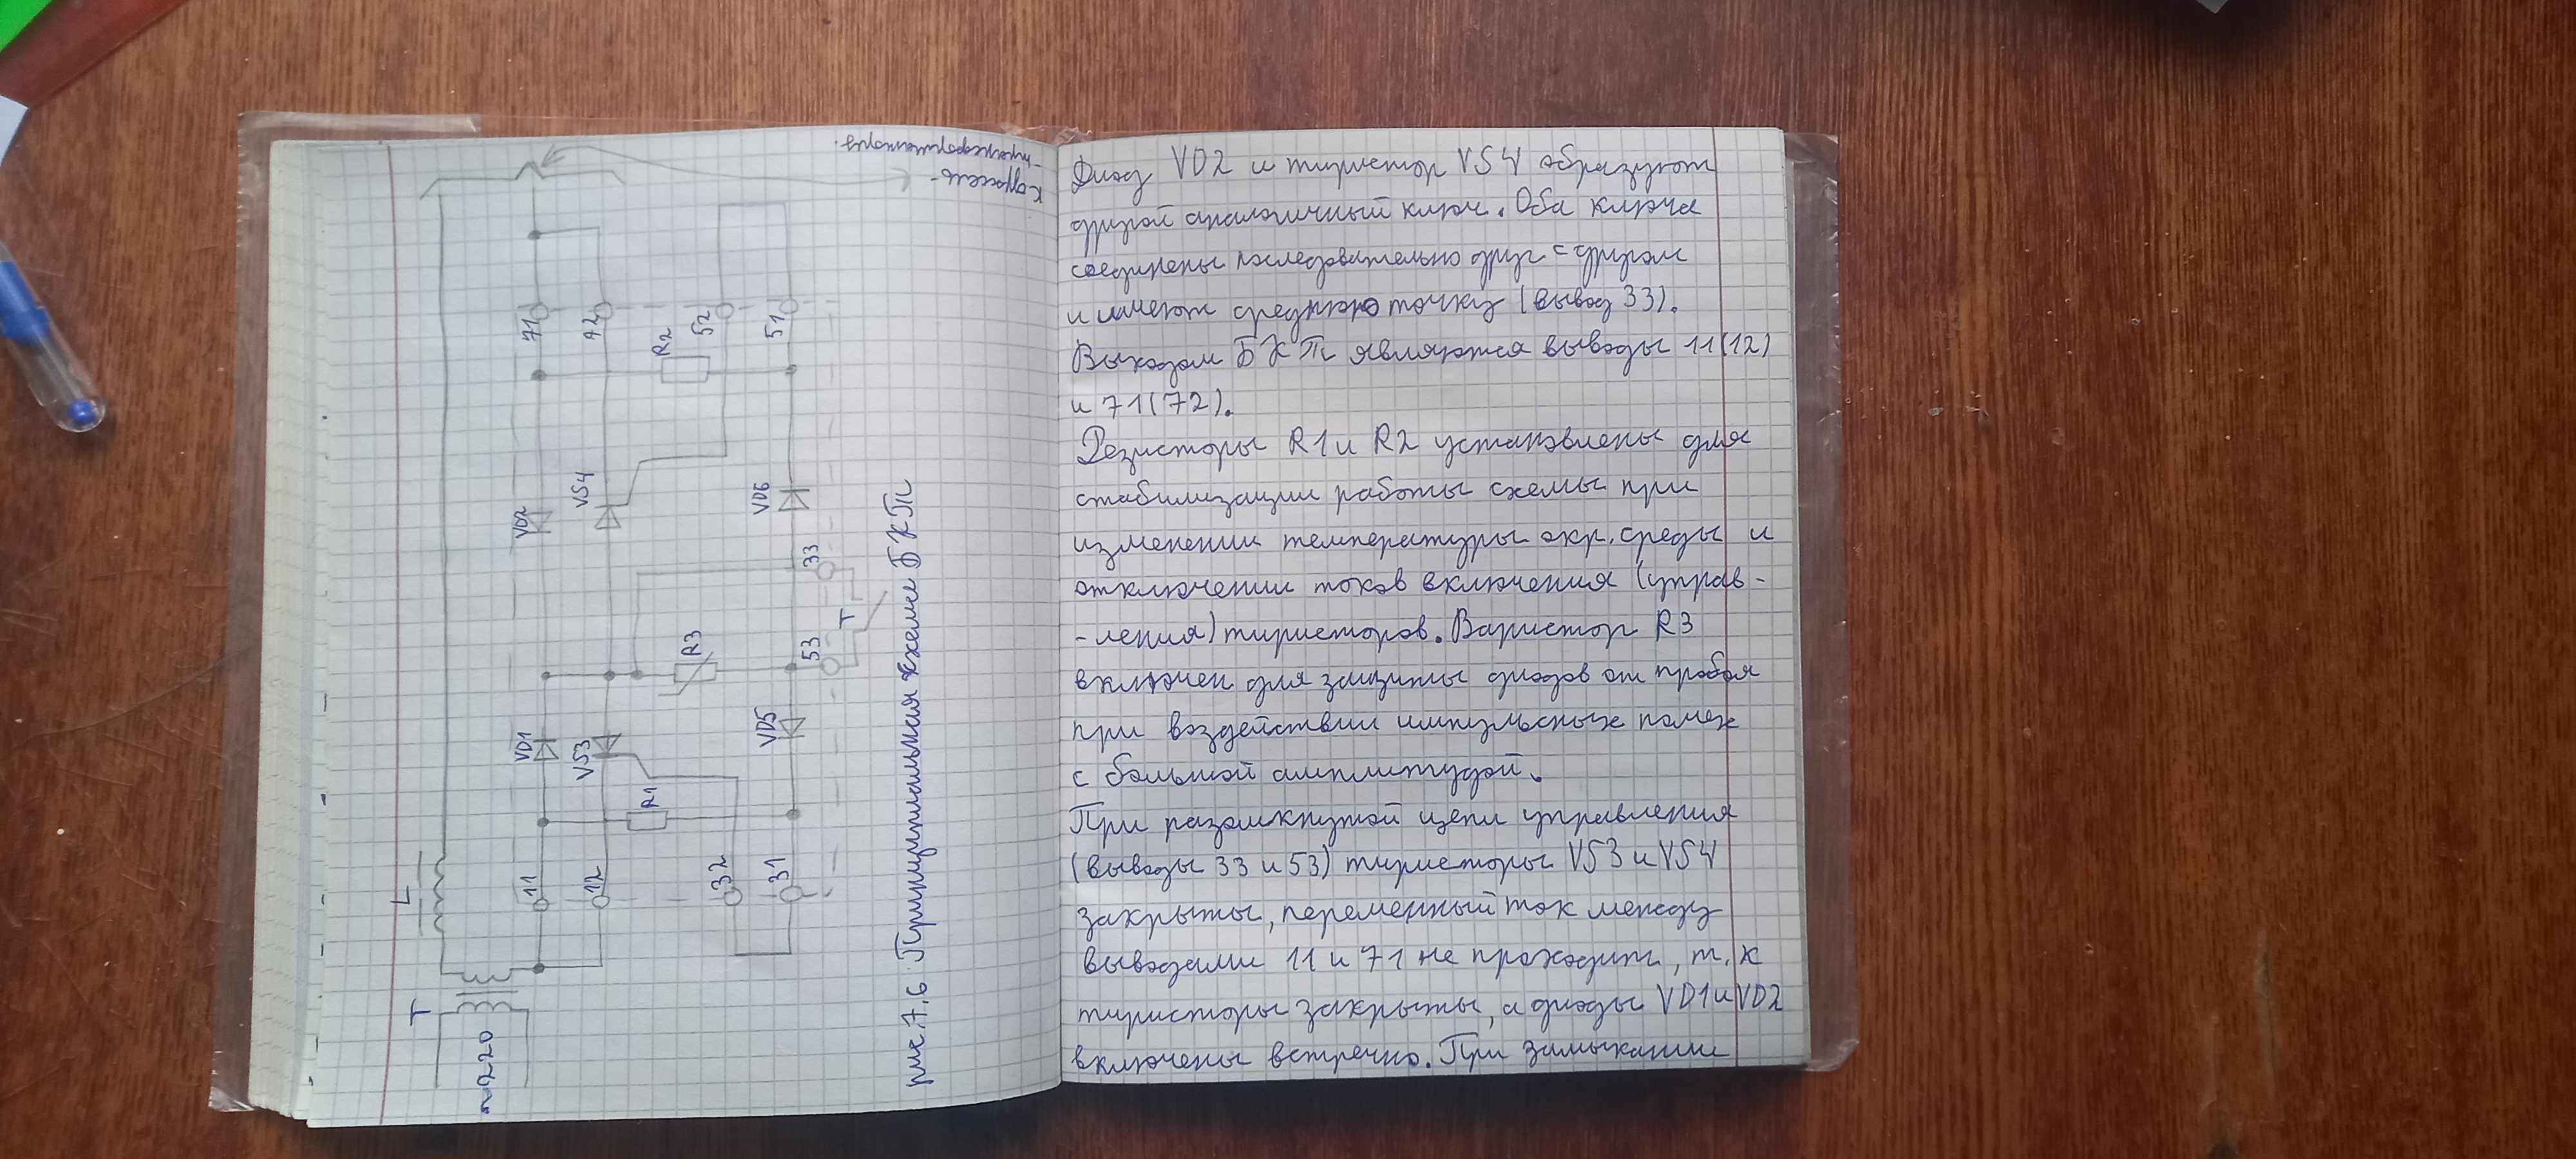 К дроссель-
-трансформатору.
L
T
~220
11
12
32
31
VD1
VS3
R1
VD5
R3
53
T
33
VD2
VS4
VD6
71
42
R2
52
51
рис.7.6: Принципиальная схема БКТ
Диод VD2 и тиристор VS4 образуют
другой аналогичный ключ. Оба ключа
соединены последовательно друг с другом
и имеют среднюю точку (вывод 33).
Выходом БКТ являются выводы 11(12)
и 71(72).
Резисторы R1 и R2 установлены для
стабилизации работы схемы при
изменении температуры окр. среды и
отключении токов включения (управ-
-ления) тиристоров. Варистор R3
включен для защиты диодов от пробоя
при воздействии импульсных помех
с большой амплитудой.
При разомкнутой цепи управления
(выводы 33 и 53) тиристоры VS3 и VS4
закрыты, переменный ток между
выводами 11 и 71 не проходит, т.к
тиристоры закрыты, а диоды VD1 и VD2
включены встречно. При замыкании